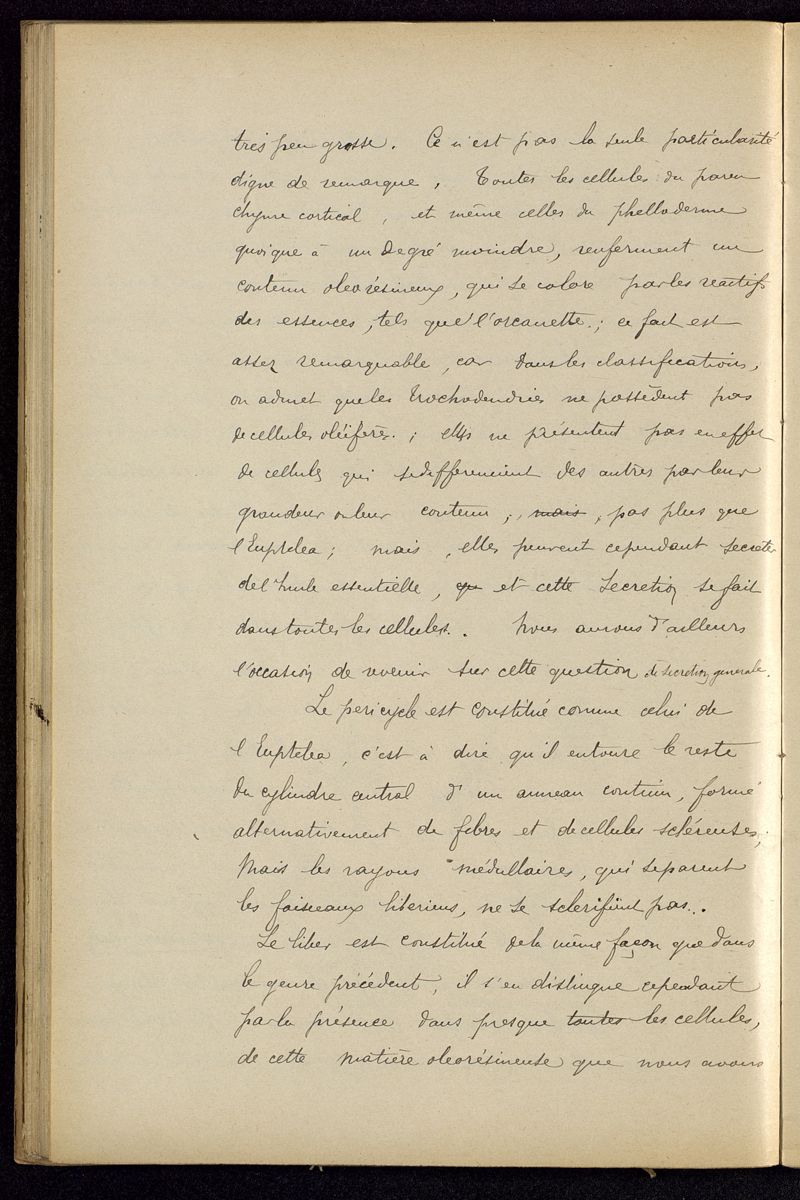 très peu grosse. Ce n'est pas la seule particularité
digne de remarque. Toutes les cellules du paren
chyme cortical, et même celles du phelloderme
quoique à un degré moindre, renferment un
contenu oleorésineux, qui se colore par les reactifs
des essences, tels que l'orcanette; ce fait est
assez remarquable, car dans les classifications,
on admet que les Trochodendrées ne possèdent pas
de cellules oléifères; elles ne présentent pas en effet
de cellules qui se differencient des autres par leur
grandeur ou leur contenu; mais, pas plus que
l'Euptelea; mais, elles peuvent cependant secréter
de l'huile essentielle, qu et cette secretion se fait
dans toutes les cellules. Nous aurons d'ailleurs
l'occasion de revenir sur cette question de secretion generale.
Le pericycle est constitué comme celui de
l'Euptelea, c'est à dire qu'il entoure le reste
du cylindre central d'un anneau continu, formé
alternativement de fibres et de cellules scléreuses,
Mais les rayons médullaires, qui separent
les faisceaux liberiens, ne se sclerifient pas.
Le liber est constitué de la même façon que dans
le genre précédent, il s'en distingue cependant
par la présence dans presque toutes les cellules,
de cette matière oleorésineuse que nous avons